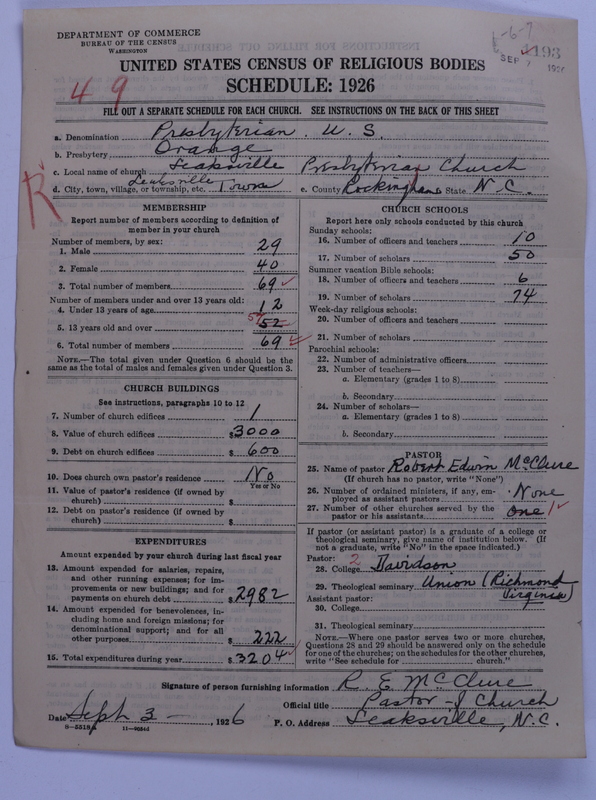 DEPARTMENT OF COMMERCE
BUREAU OF THE CENSUS
WASHINGTON
-6-7
SEP 7 1926
193
UNITED STATES CENSUS OF RELIGIOUS BODIES
SCHEDULE: 1926
4 9
FILL OUT A SEPARATE SCHEDULE FOR EACH CHURCH. SEE INSTRUCTIONS ON THE BACK OF THIS SHEET
a. Denomination Presbyterian. U. S.
b. Presbytery Orange
c. Local name of church Leaksville Presbyterian Church
d. City, town, village, or township, etc. Leaksville Town e. County Rockingham State N.C.
R
MEMBERSHIP
Report number of members according to definition of member in your church
Number of members, by sex:
1. Male 29
2. Female 40
3. Total number of members 69
Number of members under and over 13 years old:
4. Under 13 years of age 12
5. 13 years old and over 57 52
6. Total number of members 69
NOTE.—The total given under Question 6 should be the same as the total of males and females given under Question 3.
CHURCH BUILDINGS
See instructions, paragraphs 10 to 12
7. Number of church edifices 1
8. Value of church edifices $3000
9. Debt on church edifices $600
10. Does church own pastor's residence No
Yes or No
11. Value of pastor's residence (if owned by church) $
12. Debt on pastor's residence (if owned by church) $
EXPENDITURES
Amount expended by your church during last fiscal year
13. Amount expended for salaries, repairs, and other running expenses; for improvements or new buildings; and for payments on church debt $2982
14. Amount expended for benevolences, including home and foreign missions; for denominational support; and for all other purposes $222
15. Total expenditures during year $3204
CHURCH SCHOOLS
Report here only schools conducted by this church
Sunday schools:
16. Number of officers and teachers 10
17. Number of scholars 50
Summer vacation Bible schools:
18. Number of officers and teachers 6
19. Number of scholars 74
Week-day religious schools:
20. Number of officers and teachers
21. Number of scholars
Parochial schools:
22. Number of administrative officers
23. Number of teachers—
a. Elementary (grades 1 to 8)
b. Secondary
24. Number of scholars—
a. Elementary (grades 1 to 8)
b. Secondary
PASTOR
25. Name of pastor Robert Edwin McClure
(If church has no pastor, write "None")
26. Number of ordained ministers, if any, employed as assistant pastors None
27. Number of other churches served by the pastor or his assistants one 1
If pastor (or assistant pastor) is a graduate of a college or theological seminary, give name of institution below. (If not a graduate, write "No" in the space indicated.)
Pastor: 2
28. College Davidson
29. Theological seminary Union (Richmond Virginia)
Assistant pastor:
30. College
31. Theological seminary
NOTE.—Where one pastor serves two or more churches, Questions 28 and 29 should be answered only on the schedule for one of the churches; on the schedules for the other churches, write "See schedule for church."
Signature of person furnishing information R. E. McClure
Official title Pastor of Church
Date Sept 3 —, 1926
P. O. Address Leaksville, N.C.
8-5518a 11-9024d